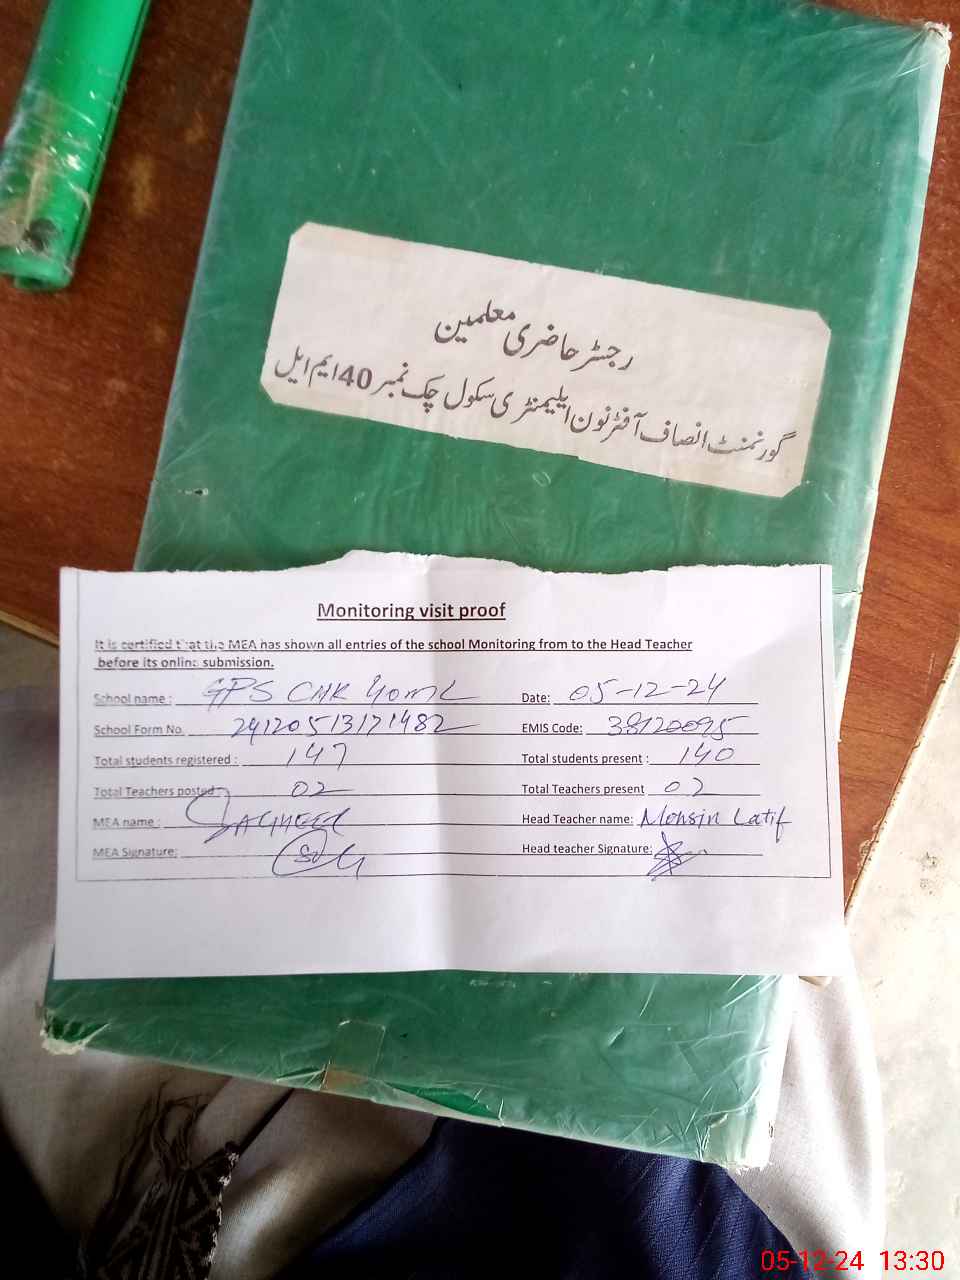 رجسٹر حاضری معلمین
گورنمنٹ انصاف آفٹرنون ایلیمنٹری سکول چک نمبر 40 ایم ایل
Monitoring visit proof
It is certified that the MEA has shown all entries of the school Monitoring from to the Head Teacher
before its online submission.
School name : GPS CHK 40ML Date: 05-12-24
School Form No. 24120513171482 EMIS Code: 38120095
Total students registered : 147 Total students present : 140
Total Teachers posted : 02 Total Teachers present 02
MEA name : Head Teacher name: Mohsin Latif
MEA Signature: Head teacher Signature:
05-12-24 13:30